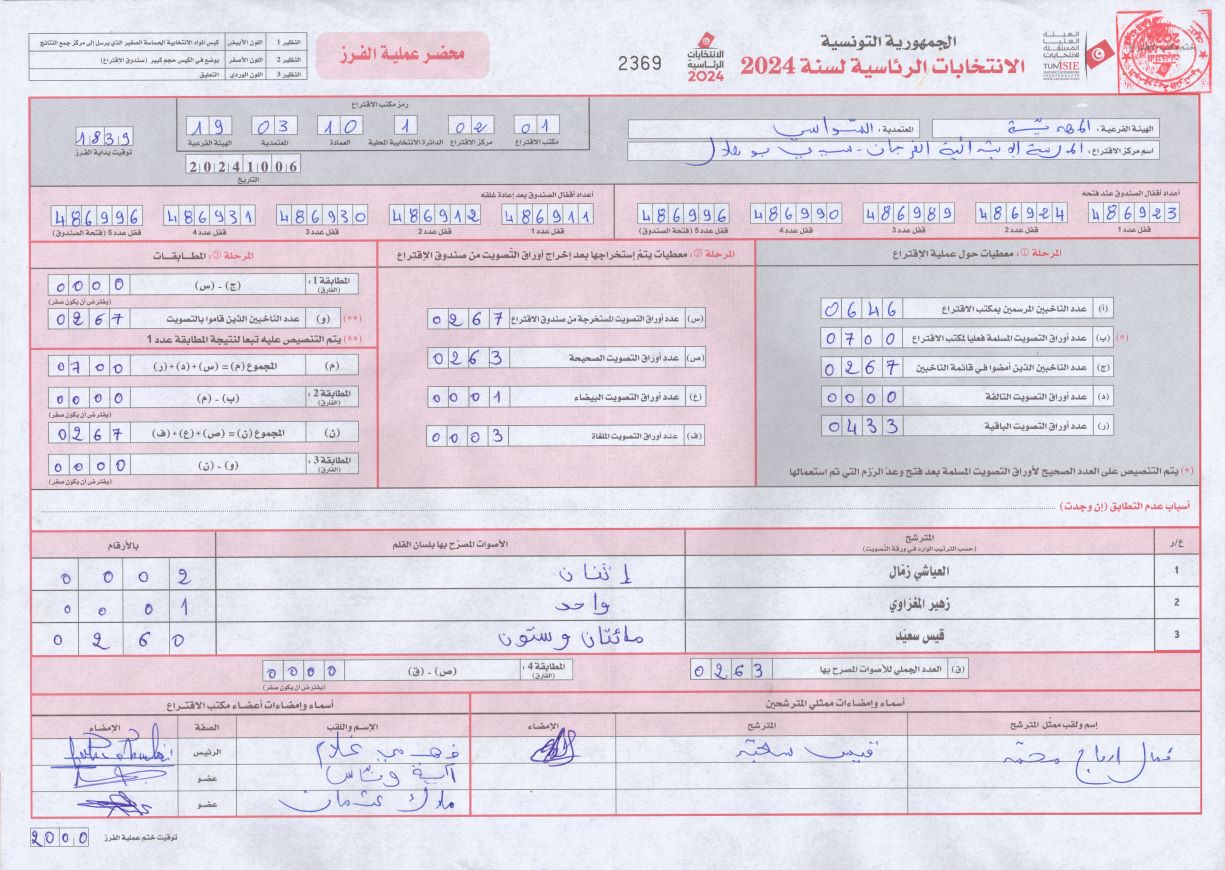 الجمهورية التونسية
الانتخابات الرئاسية لسنة 2024
الهيئة العليا المستقلة للانتخابات
TUNISIE
الانتخابات الرئاسية 2024
2369
محضر عملية الفرز
النظير 1 اللون الأبيض كيس المواد الانتخابية الحساسة الصغير الذي يرسل إلى مركز جمع النتائج
النظير 2 اللون الأصفر يوضع في الكيس حجم كبير (صندوق الاقتراع)
النظير 3 اللون الوردي التعليق
الهيئة الفرعية : المهدية المعتمدية : السواسي
اسم مركز الاقتراع : المدرسة الابتدائية الفرجان - سيدي بوهلال
رمز مكتب الاقتراع
01 02 1 10 03 19
مكتب الاقتراع مركز الاقتراع الدائرة الانتخابية المحلية العمادة المعتمدية الهيئة الفرعية
20241006
التاريخ
1839
توقيت بداية الفرز
أعداد أقفال الصندوق عند فتحه
486923 486924 486989 486990 486996
قفل عدد 1 قفل عدد 2 قفل عدد 3 قفل عدد 4 قفل عدد 5 (فتحة الصندوق)
أعداد أقفال الصندوق بعد إعادة غلقه
486911 486912 486930 486931 486996
قفل عدد 1 قفل عدد 2 قفل عدد 3 قفل عدد 4 قفل عدد 5 (فتحة الصندوق)
المرحلة ①: معطيات حول عملية الإقتراع
(أ) عدد الناخبين المرسمين بمكتب الاقتراع 0646
(*) (ب) عدد أوراق التصويت المسلمة فعليا لمكتب الاقتراع 0700
(ج) عدد الناخبين الذين أمضوا في قائمة الناخبين 0267
(د) عدد أوراق التصويت التالفة 0000
(ر) عدد أوراق التصويت الباقية 0433
(*) يتم التنصيص على العدد الصحيح لأوراق التصويت المسلمة بعد فتح وعد الرزم التي تم استعمالها
المرحلة ②: معطيات يتم إستخراجها بعد إخراج أوراق التصويت من صندوق الإقتراع
(س) عدد أوراق التصويت المستخرجة من صندوق الاقتراع 0267
(ص) عدد أوراق التصويت الصحيحة 0263
(ع) عدد أوراق التصويت البيضاء 0001
(ف) عدد أوراق التصويت الملغاة 0003
المرحلة ③: المطابقات
المطابقة 1 : (الفارق) (ج) - (س) 0000
(يفترض أن يكون صفر)
(**) (و) عدد الناخبين الذين قاموا بالتصويت 0267
(**) يتم التنصيص عليه تبعا لنتيجة المطابقة عدد 1
(م) المجموع (م) = (س) + (د) + (ر) 0700
المطابقة 2 : (الفارق) (ب) - (م) 0000
(يفترض أن يكون صفر)
(ن) المجموع (ن) = (ص) + (ع) + (ف) 0267
المطابقة 3 : (الفارق) (و) - (ن) 0000
(يفترض أن يكون صفر)
أسباب عدم التطابق (إن وجدت)
ع/ر المترشح (حسب الترتيب الوارد في ورقة التصويت) الأصوات المصرّح بها بلسان القلم بالأرقام
1 العياشي زمّال إثنان 0002
2 زهير المغزاوي واحد 0001
3 قيس سعيّد مائتان وستون 0260
(ق) العدد الجملي للأصوات المصرح بها 0263
المطابقة 4 : (الفارق) (ص) - (ق) 0000
(يفترض أن يكون صفر)
أسماء وإمضاءات ممثلي المترشحين
إسم ولقب ممثل المترشح المترشح الإمضاء
كمال قيس سعيد
أسماء وإمضاءات أعضاء مكتب الاقتراع
الإسم واللقب الصفة الإمضاء
فهمي علام الرئيس
آية ونّاس عضو
ملاك عثمان عضو
توقيت ختم عملية الفرز 2000